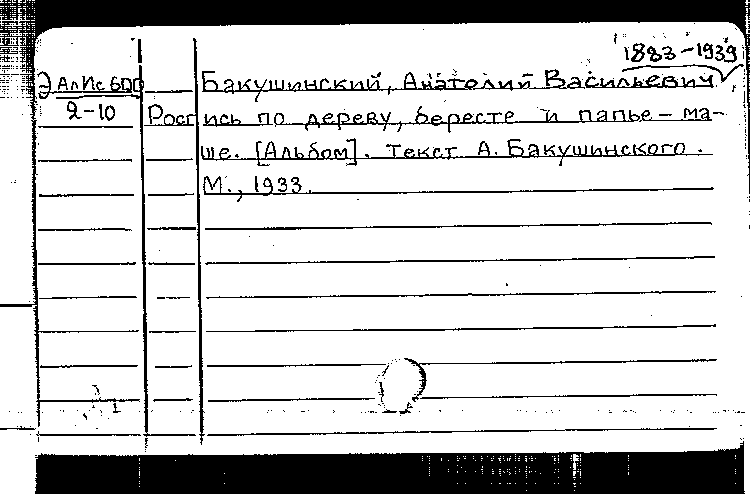 1883-1939
ЭАлИс600 Бакушинский, Анатолий Васильевич,
2-10 Роспись по дереву, бересте и папье-ма-
ше. [Альбом]. Текст А. Бакушинского.
М., 1933.